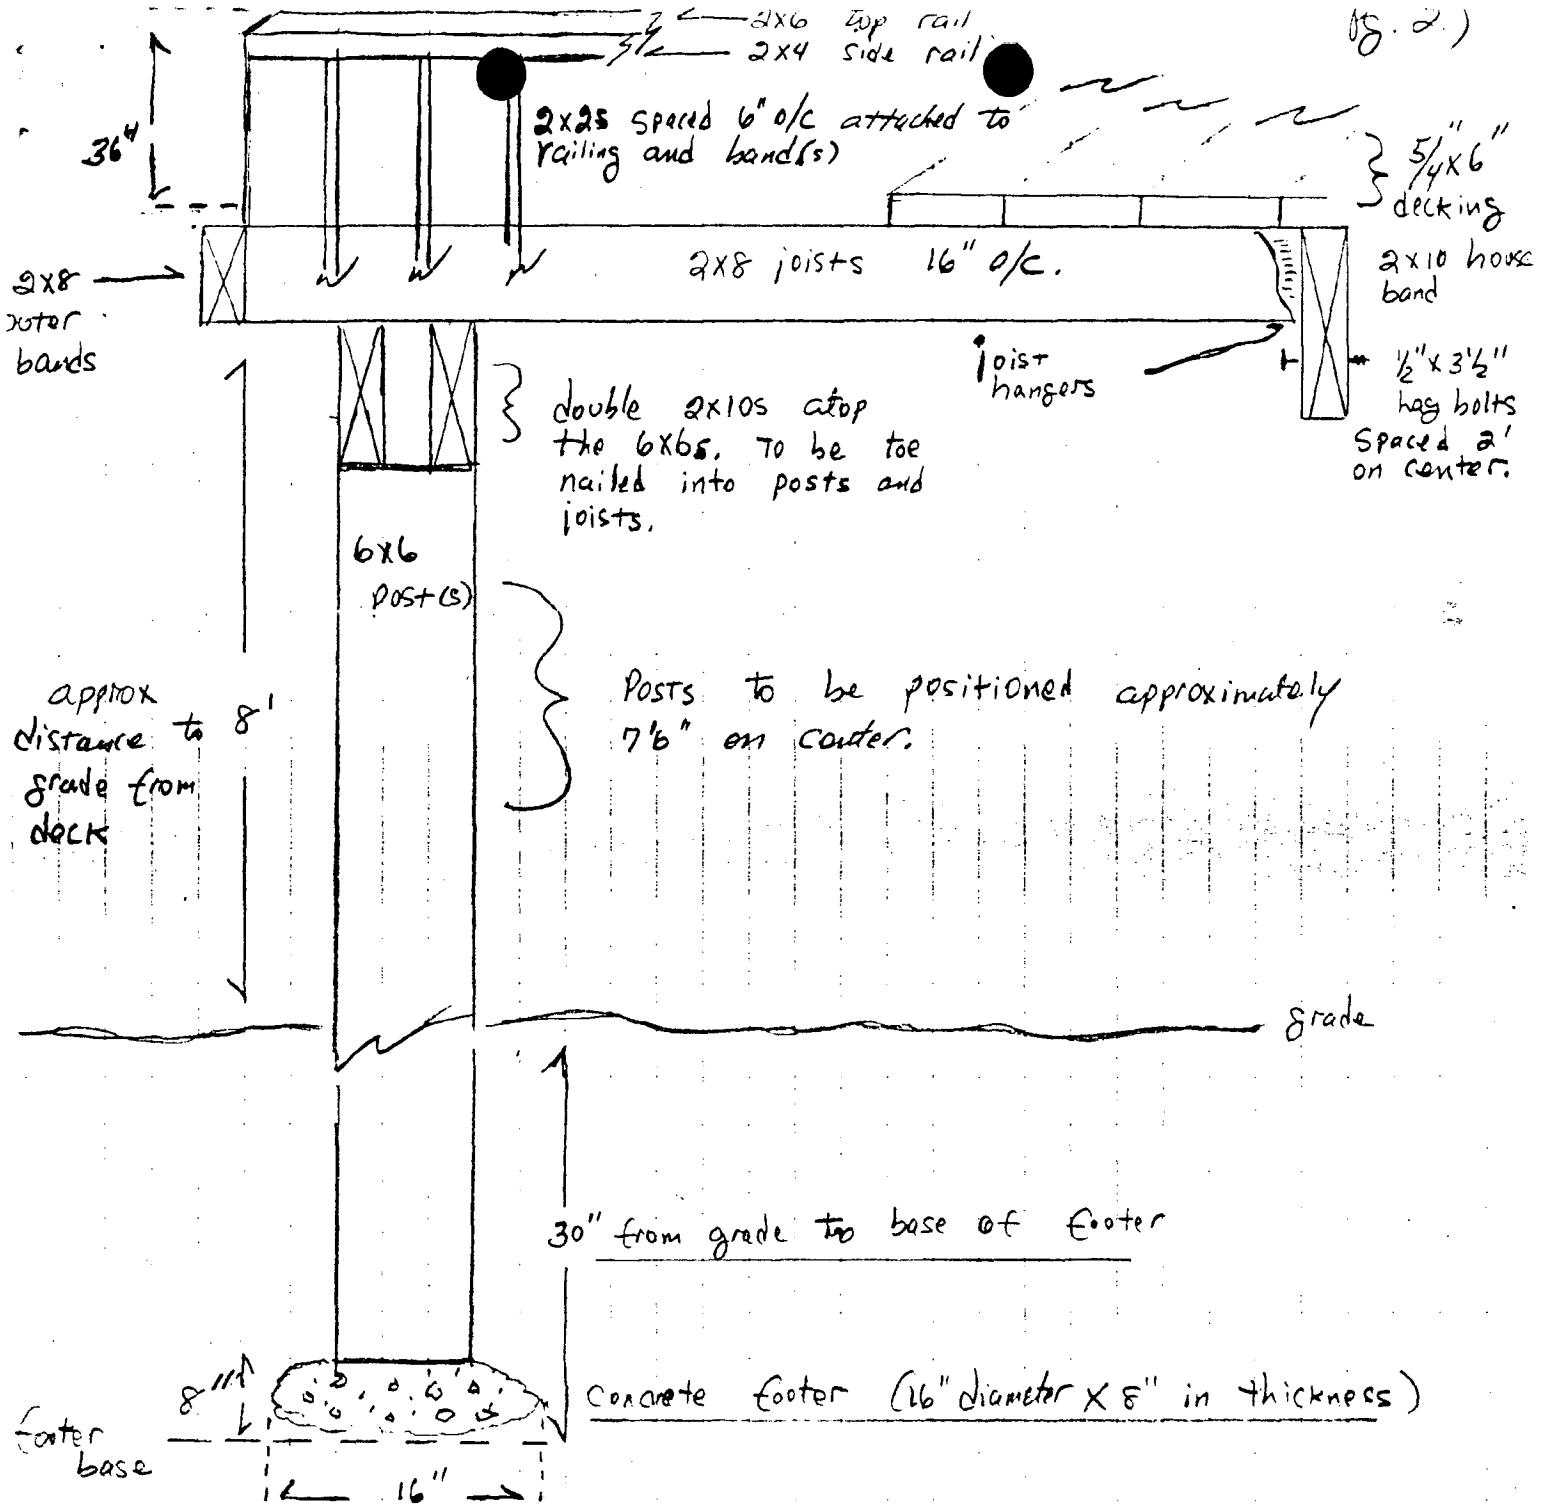 2x6 top rail
2x4 side rail
pg. 2.)
36"
2x2s spaced 6" o/c attached to
railing and band(s)
5/4" x 6"
decking
2x8
outer
bands
2x8 joists 16" o/c.
2x10 house
band
joist
hangers
1/2" x 3 1/2"
lag bolts
spaced 2'
on center.
double 2x10s atop
the 6x6s. To be toe
nailed into posts and
joists.
6x6
post(s)
Posts to be positioned approximately
7'6" on center.
approx
distance to 8'
grade from
deck
grade
30" from grade to base of footer
8"
concrete footer (16" diameter x 8" in thickness)
footer
base
16"